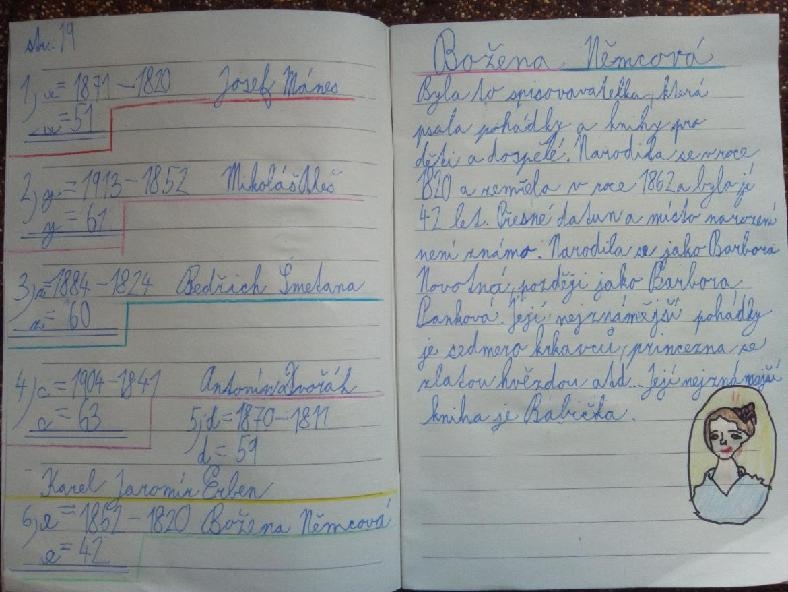 str. 19
1, x = 1871 – 1820 Josef Mánes
x = 51
2, y = 1913 – 1852 Mikoláš Aleš
y = 61
3, z = 1884 – 1824 Bedřich Smetana
z = 60
4, c = 1904 – 1841 Antonín Dvořák
c = 63
5, d = 1870 – 1811
d = 59
Karel Jaromír Erben
6, e = 1862 – 1820 Božena Němcová
e = 42
Božena Němcová
Byla to spisovavatelka, která
psala pohádky a knihy pro
děti a dospělé. Narodila se v roce
1820 a zemřela v roce 1862 a bylo jí
42 let. Přesné datun a místo narození
není známo. Narodila se jako Barbora
Novotná, později jako Barbora
Panková. Její nejznámější pohádky
je sedmero krkavců, princezna se
zlatou hvězdou atd... Její nejznámější
kniha je Babička.